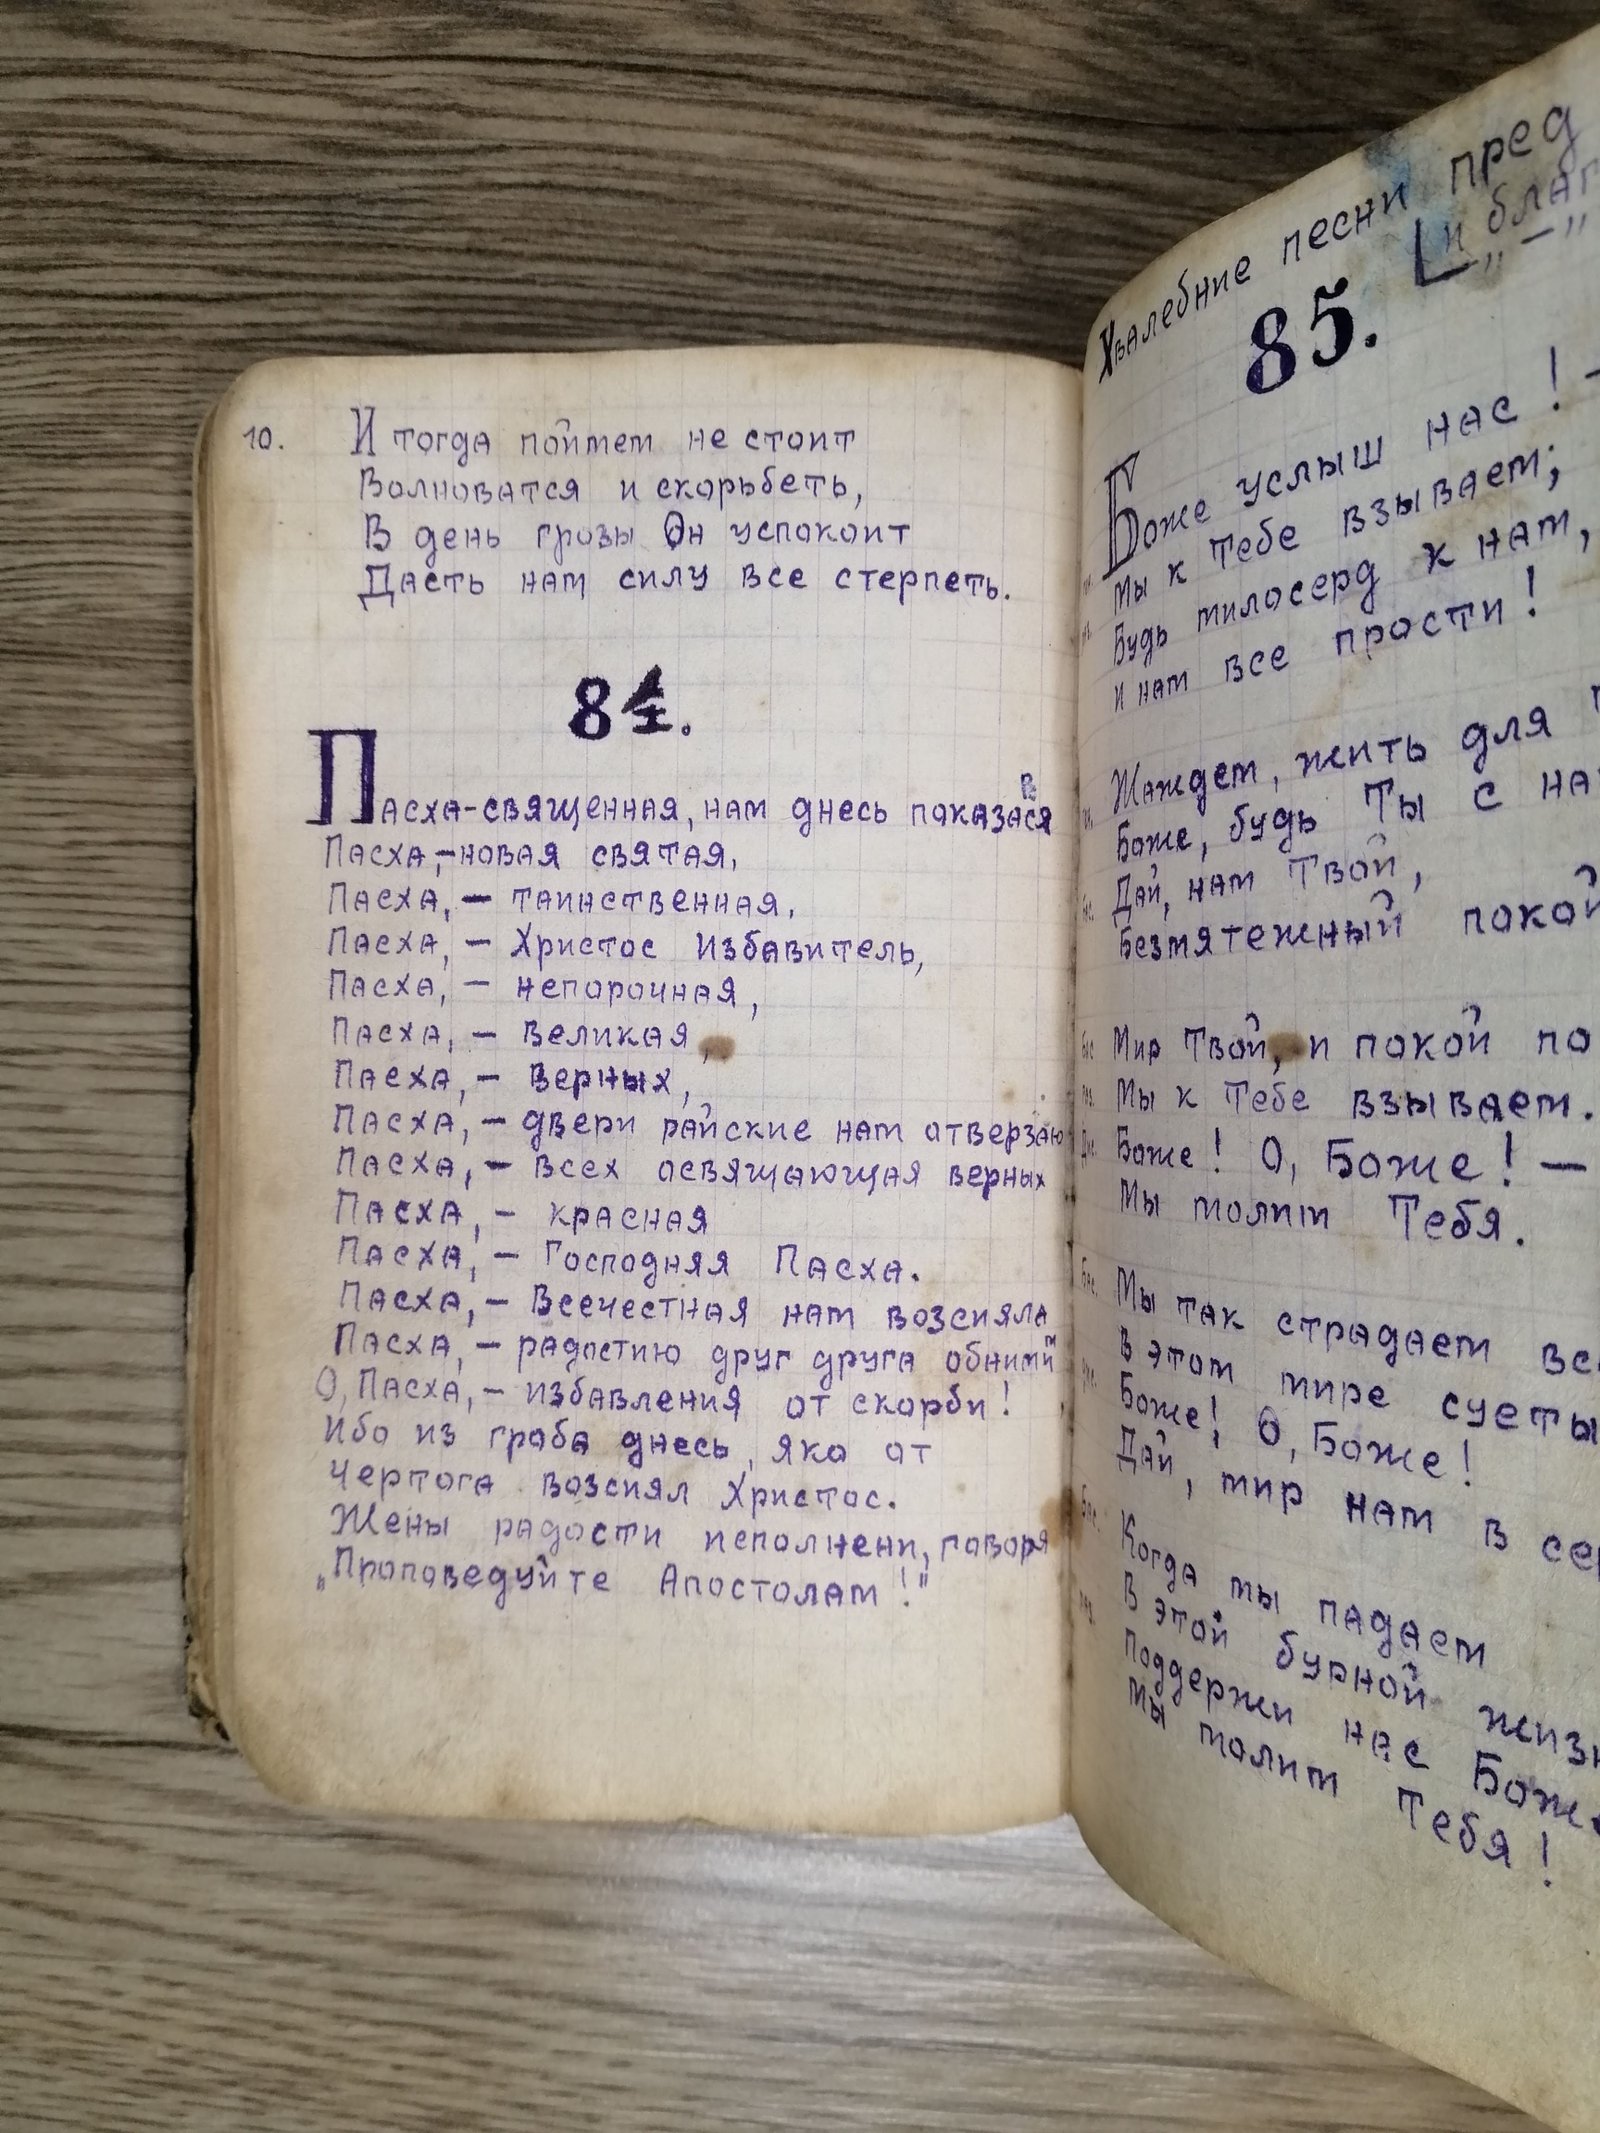 10. И тогда поймем не стоит
Волноватся и скорьбеть,
В день грозы Он успокоит
Дасть нам силу все стерпеть.
84.
Пасха-священная, нам днесь показася
Пасха,-новая святая,
Пасха, - таинственная,
Пасха, - Христос Избавитель,
Пасха, - непорочная,
Пасха, - Великая,
Пасха, - Верных,
Пасха, - двери райские нам отверзаю
Пасха, - всех освящающая верных
Пасха, - красная
Пасха, - Господняя Пасха.
Пасха, - Всечестная нам возсияла
Пасха, - радостию друг друга обнимим
О, Пасха, - избавления от скорби!
Ибо из гроба днесь, яко от
чертога возсиял Христос.
Жены радости исполнени, говоря
„Проповедуйте Апостолам!"
Хвалебние песни пред
и благ
„ - „
85.
Боже услыш нас! -
Мы к Тебе взываем;
Будь милосерд к нам,
и нам все прости!
Жаждем, жить для
Боже, будь Ты с на
Дай, нам Твой,
Безмятежный покой
Мир Твой, и покой по
Мы к Тебе взываем.
Боже! О, Боже! -
Мы молим Тебя.
Бас. Мы так страдаем
В этом мире суеты
Боже! О, Боже!
Дай, мир нам в
Бас. Когда мы падаем
В этой бурной
Поддержи нас Боже
Мы молим Тебя!